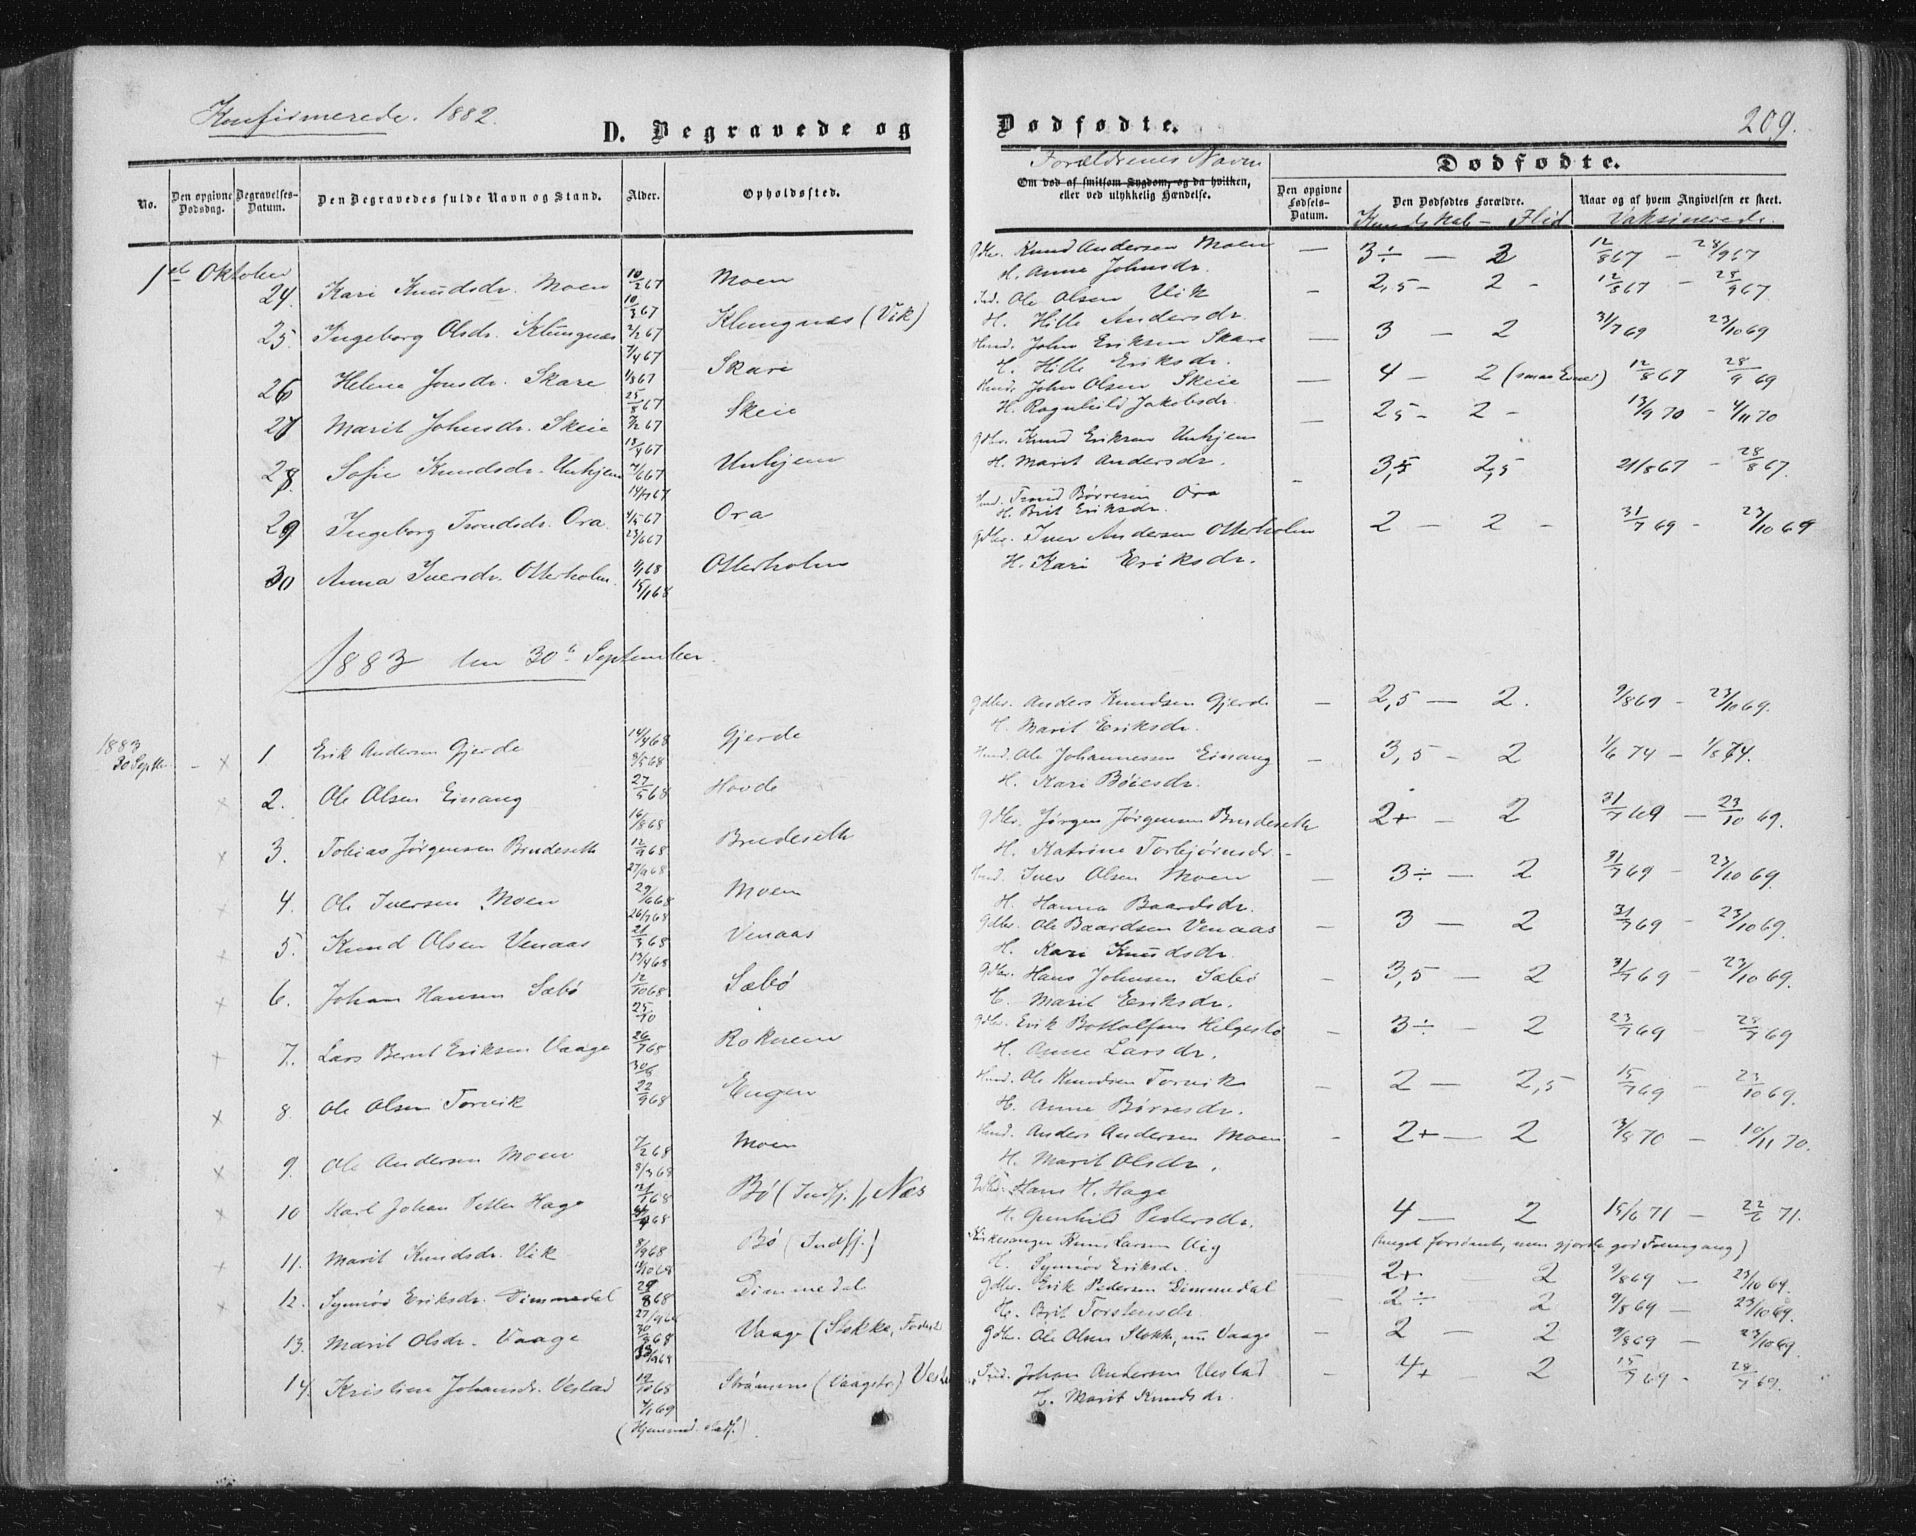 Konfirmerede. 1882.
D. Begravede og
No.
Den opgivne Dødsdag.
Begravelses-Datum.
Den Begravedes fulde Navn og Stand.
Alder.
Opholdssted.
1ste Oktober
24. Kari Knudsdr. Moen 10/2 67 10/3 67 Moen
25. Ingeborg Olsdr. Klungnæs 2/2 67 7/4 67 Klungnæs (Vik)
26 Helene Jonsdr. Skare 1/8 67 25/8 67 Skare
27 Marit Johnsdr. Skeie 7/2 67 Skeie
28. Sofie Knudsdr. Unhjem 14/7 67 Unhjem
29 Ingeborg Trondsdr. Ora 4/5 67 23/6 67 Ora
30 Anna Iversdr. Otterholm. 1/1 68 15/1 68 Otterholm
1883 den 30te September.
1883
30 Septbr.
1. Erik Andersen Gjerde 14/4 68 3/5 68 Gjerde
2. Ole Olsen Einang 27/5 68 16/8 68 Hovde
3. Tobias Jørgensen Brudeseth 12/9 68 27/9 68 Brudeseth
4. Ole Iversen Moen 29/6 68 26/7 68 Moen
5. Knud Olsen Venaas 21/3 68 13/4 68 Venaas
6. Johan Hansen Sæbø 12/10 68 25/10 Sæbø
7. Lars Bernt Eriksen Vaage 26/7 68 30/8 Rokerem
8. Ole Olsen Torvik 22/9 68 Engen
9. Ole Andersen Moen 7/2 68 8/3 68 Moen
10 Karl Johan Petter Hage Bø (Indfj.), Næs
11. Marit Knudsdr. Vik 8/9 68 Bø (Indfj.)
12. Synnøv Eriksdr. Dimmedal Dimmedal
13. Marit Olsdr. Vaage Vaage (Stokke,
14. Kristine Johansdr. Vestad 19/10 68 1/1 69 Strømmen (Vaagstr.)
Dødfødte.
209.
Forældrenes Navn
Om død af smitsom Sygdom, og da hvilken,
eller ved ulykkelig Hændelse.
Dødfødte.
Den opgivne Fødsels-Datum.
Den Dødfødtes Forældre.
Kundskab – Flid
Naar og af hvem Angivelsen er skeet.
Vaksinerede.
Gdbr. Knud Andersen Moen — 3÷ — 2 12/8 67 — 28/9 67
H. Anne Johnsdr.
Ind. Ole Olsen Vik - 2,5 - 2 - 12/8 67 — 28/9 67.
H. Hille Andersdr.
Husmd. John Eriksen Skare — 3 — 2 31/7 69 23/10 69
H. Hille Eriksdr.
Husmd. John Olsen Skeie — 4 — 2 (smaa Evner) 12/8 67 28/9 69
H. Ragnhild Jakobsdr. — 2,5 - 2 - 13/9 70 - 4/11 70
Gdbr. Knud Eriksen Unhjem
H. Marit Andersdr. - 3,5 2,5 21/8 67 - 28/8 67.
Husmd. Trond Børresen Ora
H. Brit Eriksdr. 2 — 2 - 31/7 69 - 23/10 69
Gdbr. Iver Andersen Otterholm
H. Kari Eriksdr.
Gdbr. Anders Knudsen Gjerde - 2,5 — 2. 9/8 69 — 23/10 69.
H. Marit Eriksdr.
Husmd. Ole Johannessen Einang - 3,5 - 2 1/6 74 — 1/8 74.
H. Kari Bøiesdr.
Gdbr. Jørgen Jørgensen Brudeseth 2+ - 2 31/7 69 — 23/10 69.
H. Katrine Torbjørnsdr.
Husmd. Iver Olsen Moen - 3÷ - 2 31/7 69 — 23/10 69.
H. Hanna Baardsdr.
Gdbr. Ole Baardsen Venaas - 3 — 2 31/7 69 - 23/10 69.
H. Kari Knudsdr.
Gdbr. Hans Johnsen Sæbø - 3,5 — 2 31/7 69 — 23/10 69.
H. Marit Eriksdr.
Gdbr. Erik Bottolfsen Helgestø - 3÷ — 2 23/7 69 — 28/7 69
H. Anne Larsdr.
Husmd. Ole Knudsen Torvik - 2 — 2,5 15/7 69 23/10 69.
H. Anne Børresdr.
Husmd. Anders Andersen Moen - 2+ — 2 3/8 70 — 10/11 70.
H. Marit Olsdr.
Gdbr. Hans H. Hage
H. Gunhild Pedersdr. 4 — 2 15/6 71 — 22/6 71.
Kirkesanger Knud Larsen Vig (meget forsømt, men gjorde god Fremgang)
H. Synnøv Eriksdr. 2+ 2 9/8 69 — 23/10 69.
Gdbr. Erik Pedersen Dimmedal 2÷ 2 9/8 69 — 23/10 69.
H. Brit Torstensdr.
Gdbr. Ole Olsen Stokke, nu Vaage - 2 — 2 9/8 69 — 23/10 69.
Ind. Johan Andersen Vestad - 4+ 2 15/7 69 - 28/7 69.
H. Marit Knudsdr.